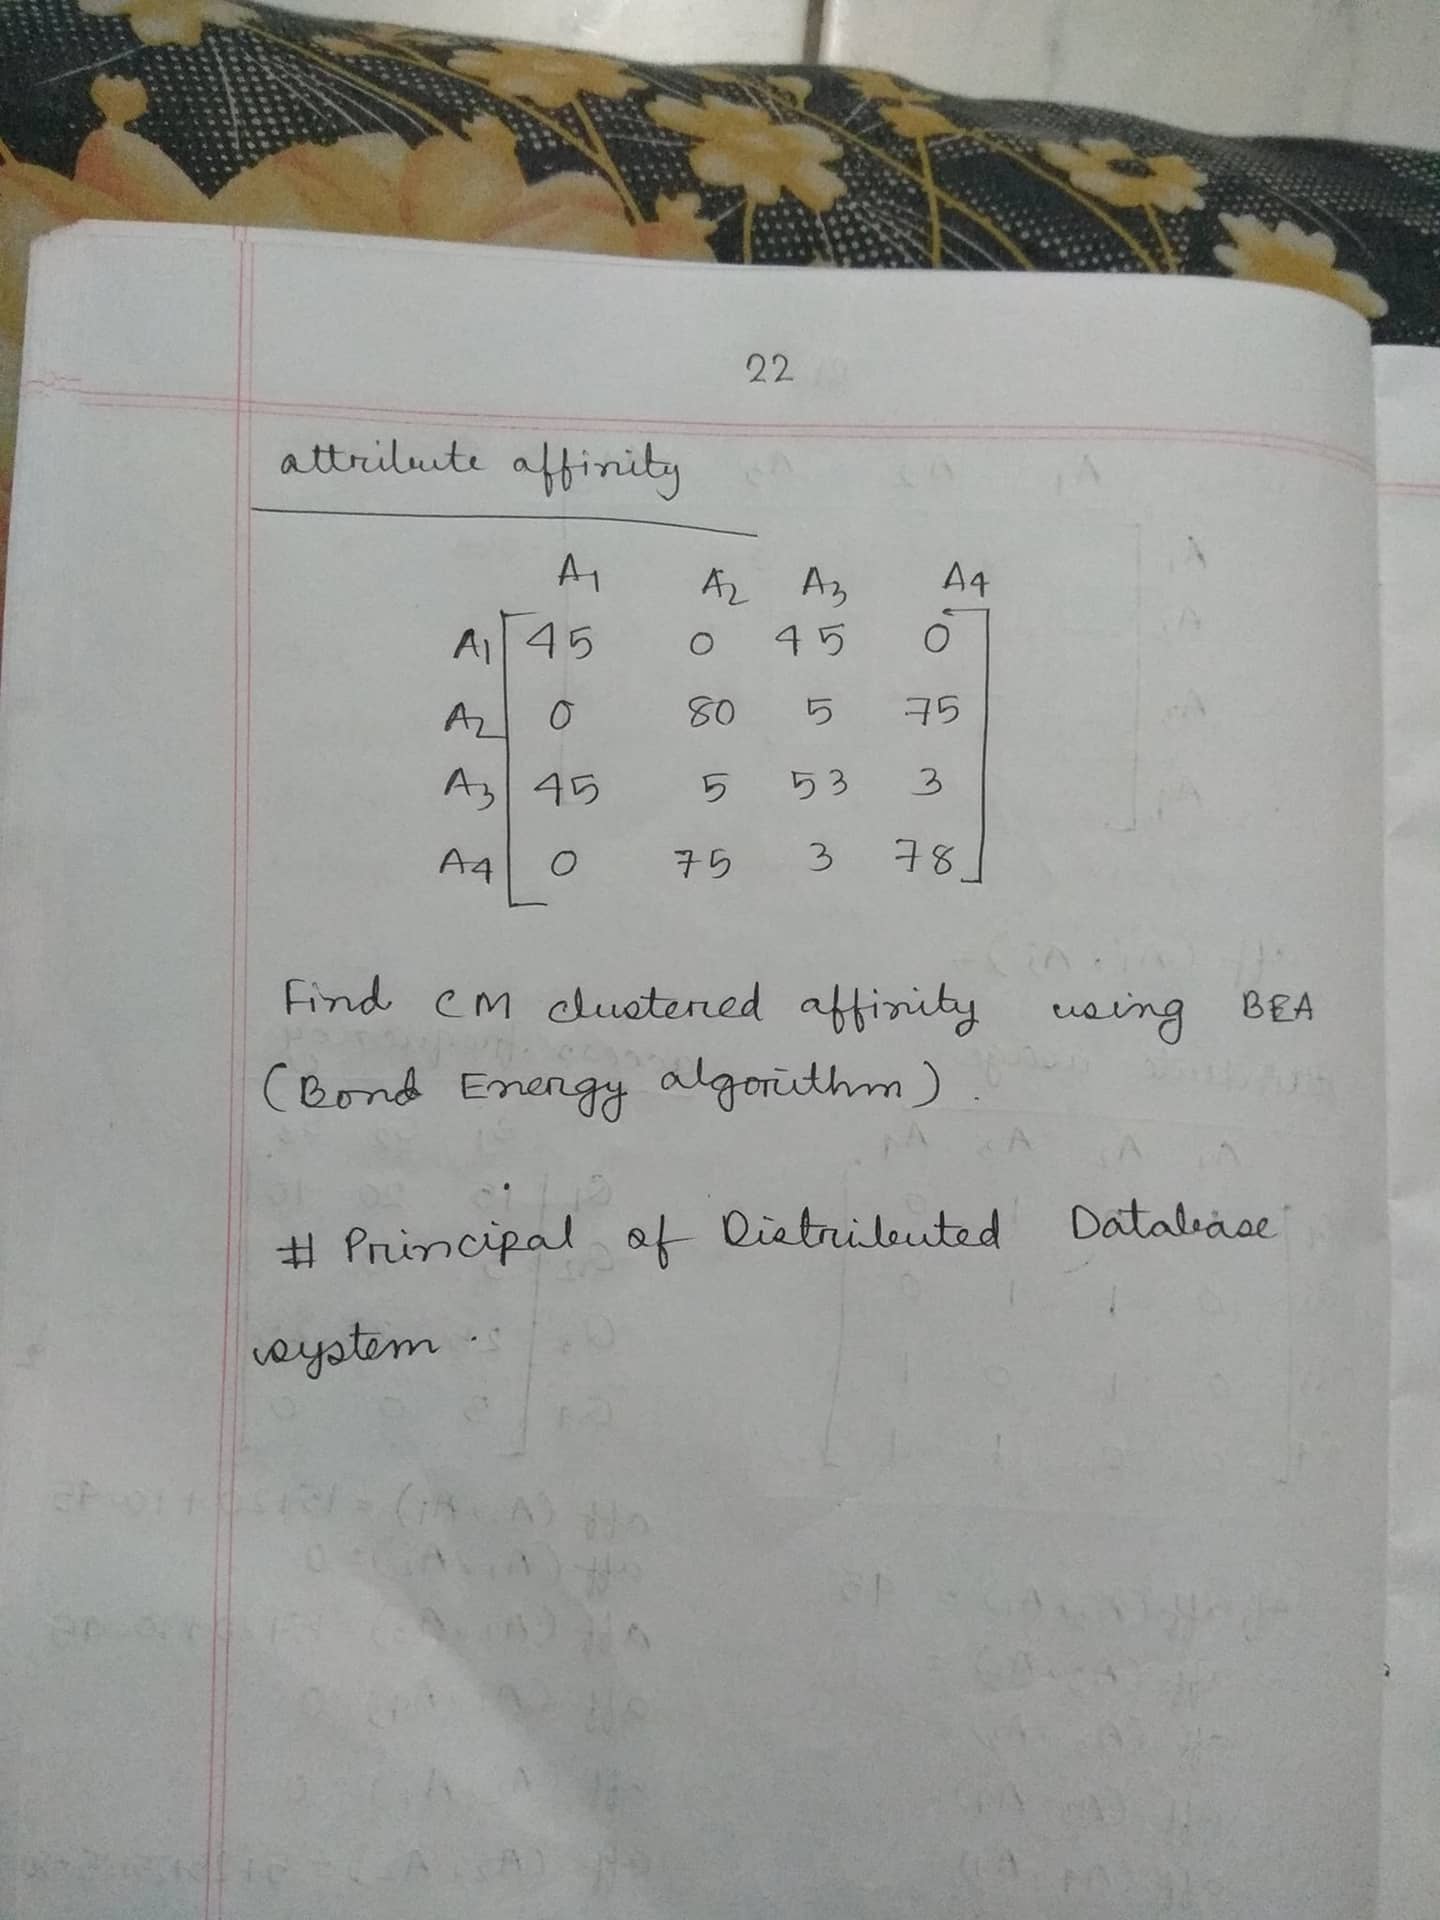 22
attribute affinity
A1 A2 A3 A4
A1 45 0 45 0
A2 0 80 5 75
A3 45 5 53 3
A4 0 75 3 78
Find CM clustered affinity using BEA
(Bond Energy algorithm).
# Principal of Distributed Database
system.